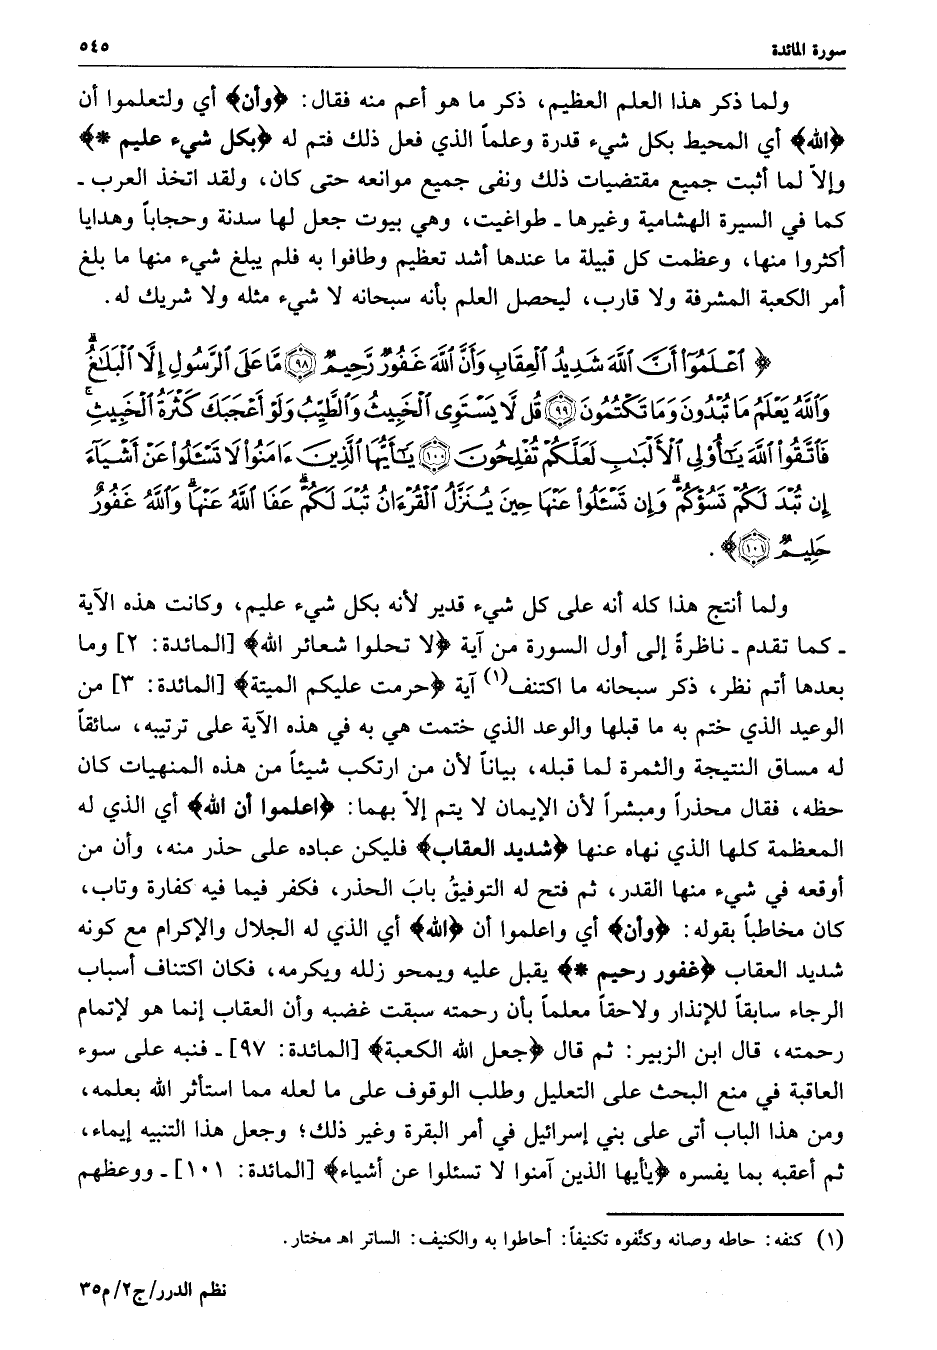 سورة المائدة ٥٤٥
ولما ذكر هذا العلم العظيم، ذكر ما هو أعم منه فقال: ﴿وأن﴾ أي ولتعلموا أن
﴿الله﴾ أي المحيط بكل شيء قدرة وعلماً الذي فعل ذلك فتم له ﴿بكل شيء عليم *﴾
وإلاّ لما أثبت جميع مقتضيات ذلك ونفى جميع موانعه حتى كان، ولقد اتخذ العرب ـ
كما في السيرة الهشامية وغيرها ـ طواغيت، وهي بيوت جعل لها سدنة وحجاباً وهدايا
أكثروا منها، وعظمت كل قبيلة ما عندها أشد تعظيم وطافوا به فلم يبلغ شيء منها ما بلغ
أمر الكعبة المشرفة ولا قارب، ليحصل العلم بأنه سبحانه لا شيء مثله ولا شريك له.
﴿ ٱعْلَمُوٓا۟ أَنَّ ٱللَّهَ شَدِيدُ ٱلْعِقَابِ وَأَنَّ ٱللَّهَ غَفُورٌ رَّحِيمٌ ﴿٩٨﴾ مَّا عَلَى ٱلرَّسُولِ إِلَّا ٱلْبَلَـٰغُ ۗ
وَٱللَّهُ يَعْلَمُ مَا تُبْدُونَ وَمَا تَكْتُمُونَ ﴿٩٩﴾ قُل لَّا يَسْتَوِى ٱلْخَبِيثُ وَٱلطَّيِّبُ وَلَوْ أَعْجَبَكَ كَثْرَةُ ٱلْخَبِيثِ ۚ
فَٱتَّقُوا۟ ٱللَّهَ يَـٰٓأُو۟لِى ٱلْأَلْبَـٰبِ لَعَلَّكُمْ تُفْلِحُونَ ﴿١٠٠﴾ يَـٰٓأَيُّهَا ٱلَّذِينَ ءَامَنُوا۟ لَا تَسْـَٔلُوا۟ عَنْ أَشْيَآءَ
إِن تُبْدَ لَكُمْ تَسُؤْكُمْ وَإِن تَسْـَٔلُوا۟ عَنْهَا حِينَ يُنَزَّلُ ٱلْقُرْءَانُ تُبْدَ لَكُمْ عَفَا ٱللَّهُ عَنْهَا ۗ وَٱللَّهُ غَفُورٌ
حَلِيمٌ ﴿١٠١﴾ ﴾.
ولما أنتج هذا كله أنه على كل شيء قدير لأنه بكل شيء عليم، وكانت هذه الآية
ـ كما تقدم ـ ناظرةً إلى أول السورة من آية ﴿لا تحلوا شعائر الله﴾ [المائدة: ٢] وما
بعدها أتم نظر، ذكر سبحانه ما اكتنف(١) آية ﴿حرمت عليكم الميتة﴾ [المائدة: ٣] من
الوعيد الذي ختم به ما قبلها والوعد الذي ختمت هي به في هذه الآية على ترتيبه، سائقاً
له مساق النتيجة والثمرة لما قبله، بياناً لأن من ارتكب شيئاً من هذه المنهيات كان
حظه، فقال محذراً ومبشراً لأن الإيمان لا يتم إلاّ بهما: ﴿اعلموا أن الله﴾ أي الذي له
المعظمة كلها الذي نهاه عنها ﴿شديد العقاب﴾ فليكن عباده على حذر منه، وأن من
أوقعه في شيء منها القدر، ثم فتح له التوفيقُ بابَ الحذر، فكفر فيما فيه كفارة وتاب،
كان مخاطباً بقوله: ﴿وأن﴾ أي واعلموا أن ﴿الله﴾ أي الذي له الجلال والإكرام مع كونه
شديد العقاب ﴿غفور رحيم *﴾ يقبل عليه ويمحو زلله ويكرمه، فكان اكتناف أسباب
الرجاء سابقاً للإنذار ولاحقاً معلماً بأن رحمته سبقت غضبه وأن العقاب إنما هو لإتمام
رحمته، قال ابن الزبير: ثم قال ﴿جعل الله الكعبة﴾ [المائدة: ٩٧] ـ فنبه على سوء
العاقبة في منع البحث على التعليل وطلب الوقوف على ما لعله مما استأثر الله بعلمه،
ومن هذا الباب أتى على بني إسرائيل في أمر البقرة وغير ذلك؛ وجعل هذا التنبيه إيماء،
ثم أعقبه بما يفسره ﴿يأيها الذين آمنوا لا تسئلوا عن أشياء﴾ [المائدة: ١٠١] ـ ووعظهم
(١) كنفه: حاطه وصانه وكنَّفوه تكنيفاً: أحاطوا به والكنيف: الساتر اهـ مختار.
نظم الدرر/ج٢/م٣٥